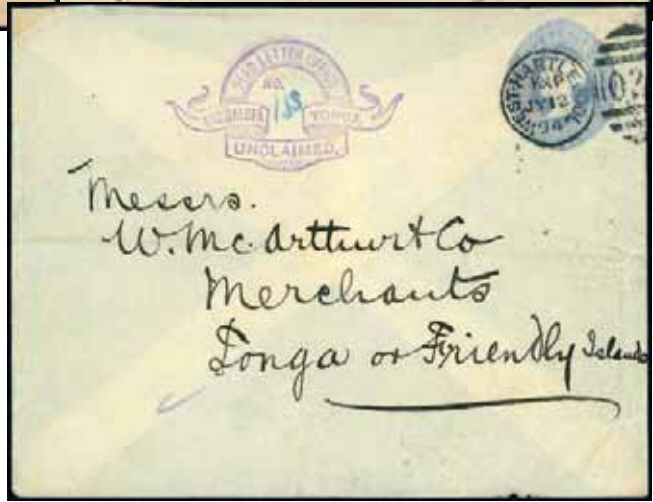 DEAD LETTER OFFICE
No.
133
TONGA
UNCLAIMED.
WEST-HARTLE
JY 12
94
Messrs.
W. Mc.Arthur & Co
Merchants
Tonga or Friendly Islands